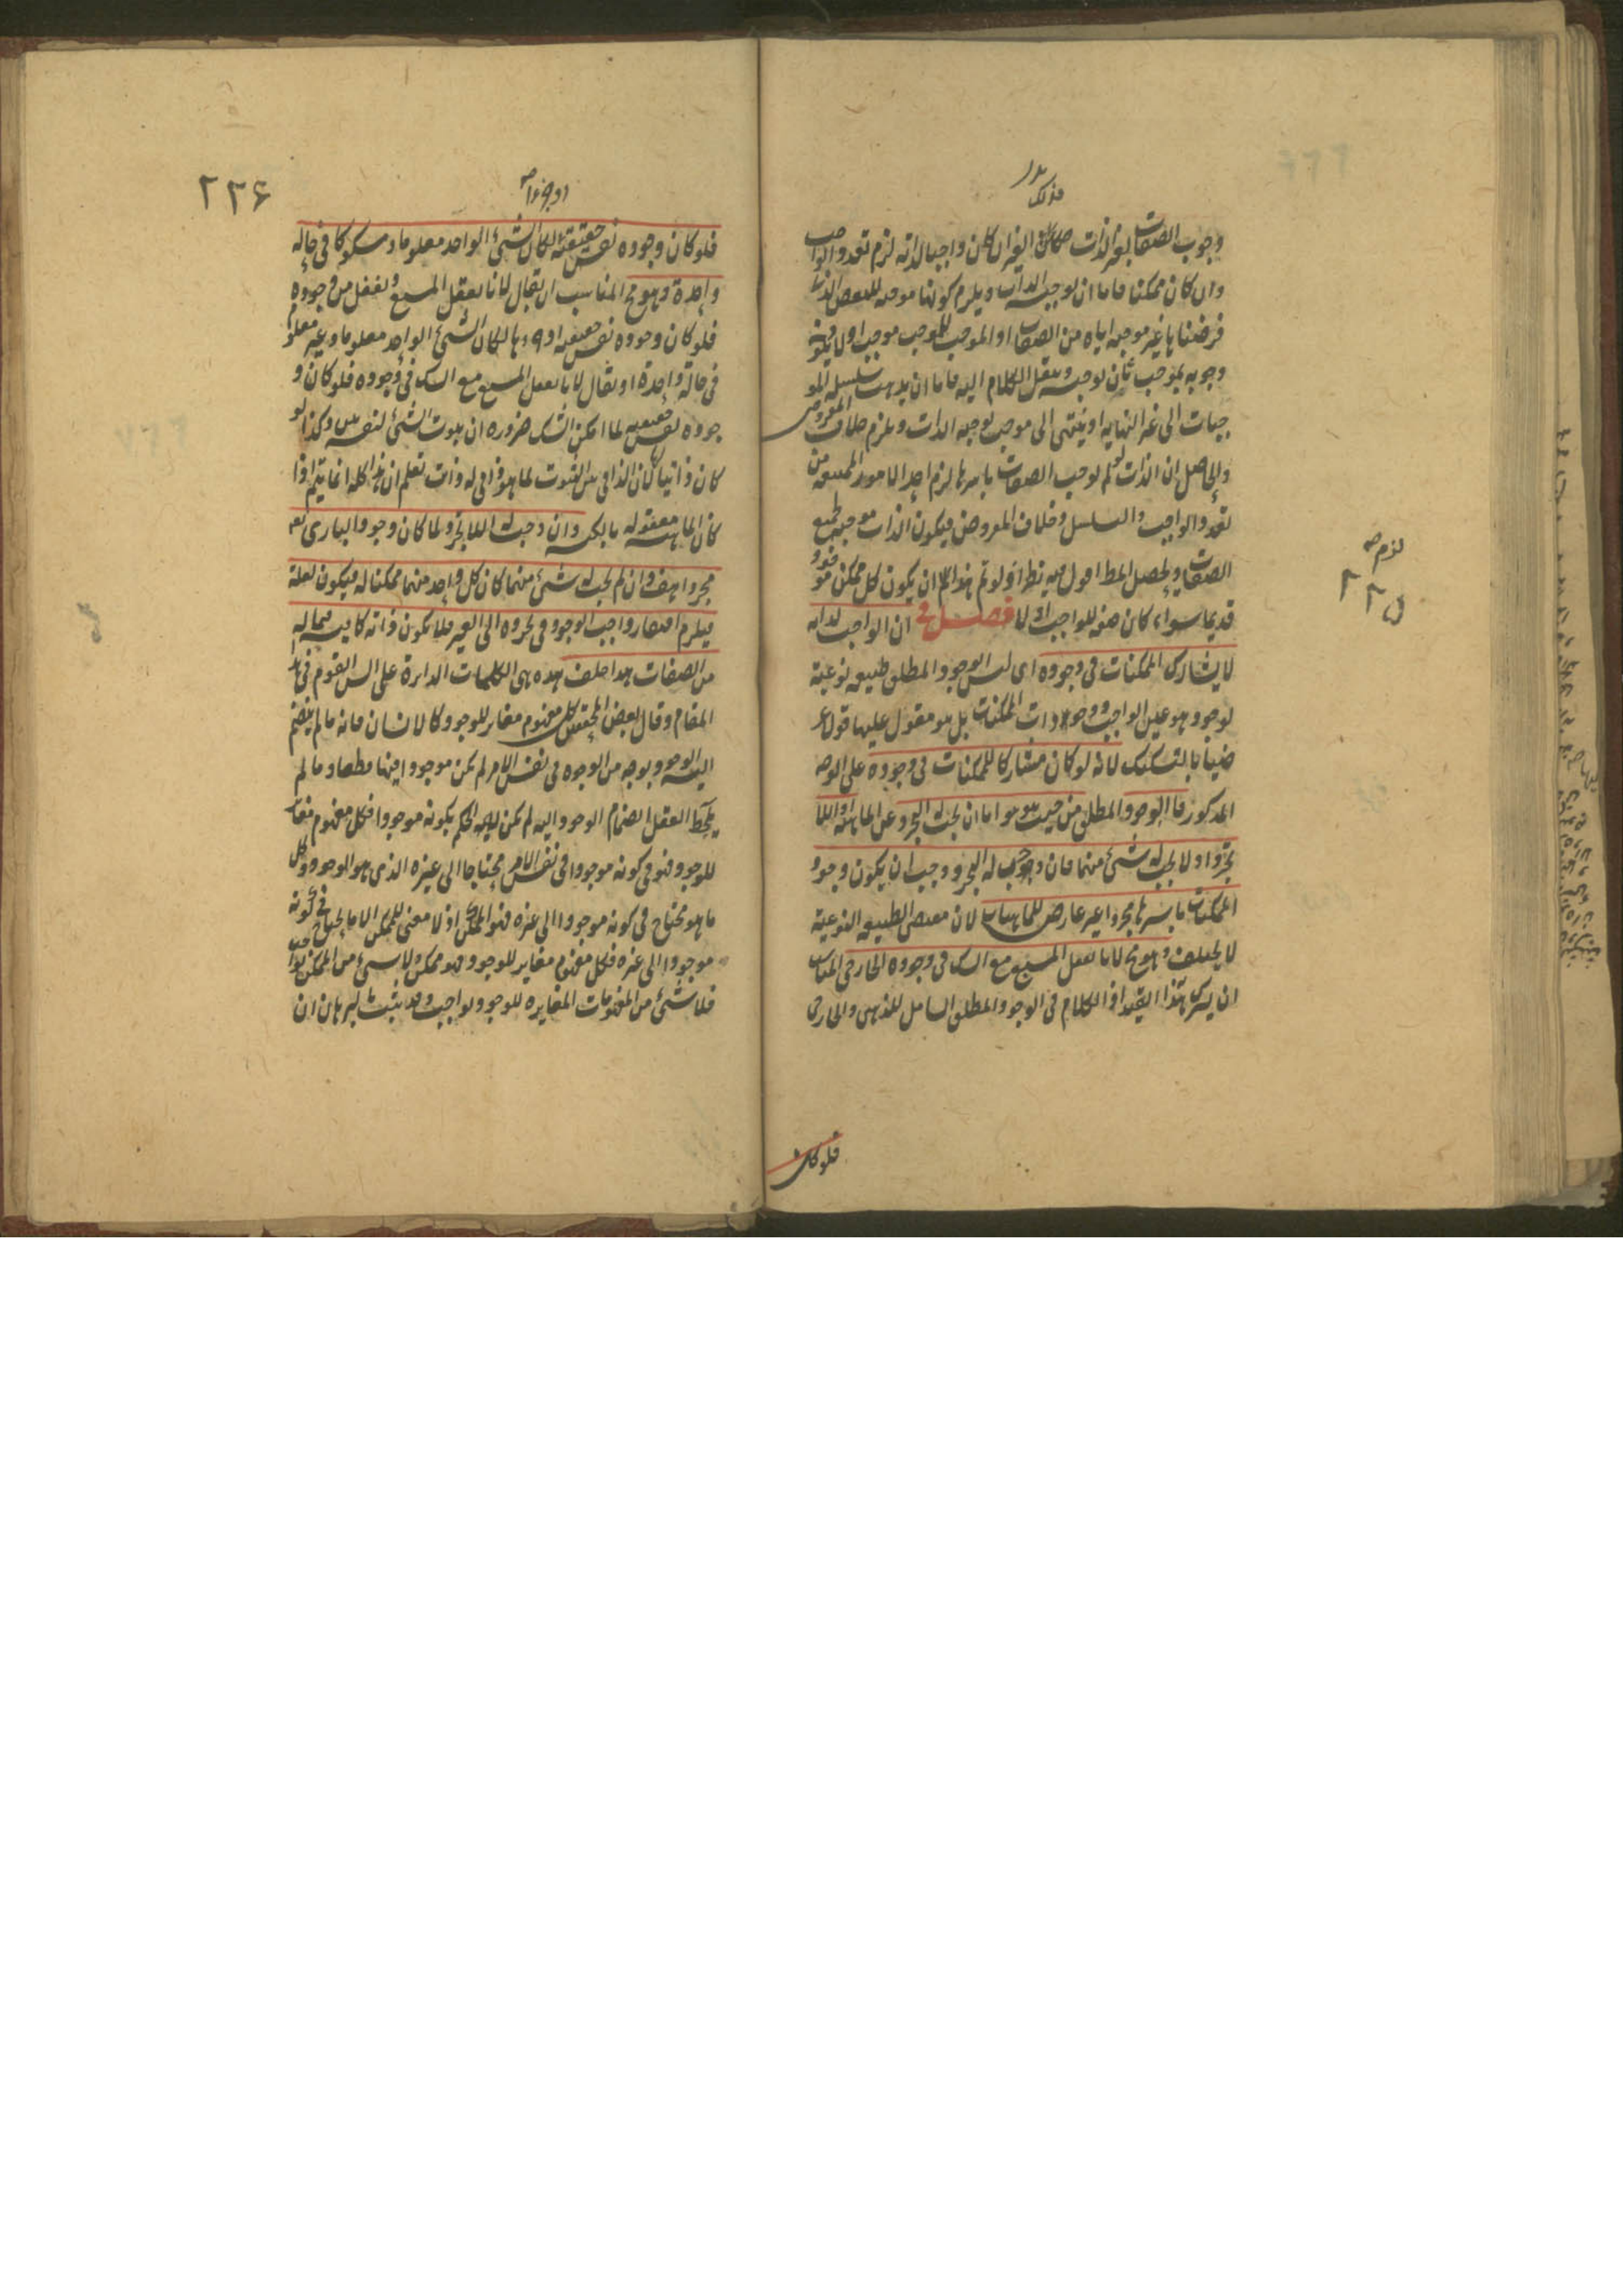 وجوب الصفات بغير الذات فذلك الغير ان كان واجبا لذاته لزم تعدد الواجب
وان كان ممكنا فاما ان يوجبه الذات ويلزم كونها موجبه للبعض الذى
فرضناها غير موجبه اياه من الصفات او الموجب للموجب موجب اولا فيكون
وجوبه بموجب ثان يوجبه وينقل الكلام اليه فاما ان يذهب سلسلة المو
جبات الى غير النهايه او ينتهى الى موجب يوجبه الذات ويلزم خلاف المفروض
والحاصل ان الذات لو لم يوجب الصفات باسرها لزم احد الامور الممتنعه من
تعدد الواجب والتسلسل وخلاف المفروض فيكون الذات موجبه لجميع
الصفات ويحصل المط اقول فيه نظر اذ لو تم هذا لزم ان يكون كل ممكن موجود
قديما سواء كان صفه للواجب او لا فصل فى ان الواجب لذاته
لا يشارك الممكنات فى وجوده اى ليس الوجود المطلق طبيعه نوعية
لوجود هو عين الواجب ووجودات الممكنات بل هو مقول عليها قولا عر
ضيا بالتشكيك لانه لو كان مشاركا للممكنات فى وجوده على الوجه
المذكور فالوجود المطلق من حيث هو هو اما ان يجب له التجرد عن الماهية او اللا
تجرد او لا يجب له شئ منهما فان وجب له التجرد وجب ان يكون وجود
الممكنات باسرها مجردا غير عارض للماهيات لان مقتضى الطبيعه النوعية
لا يختلف وهو مح لانا نعقل المسبع مع الشك فى وجوده الخارجى المناسب
ان يترك هذا القيد اذ الكلام فى الوجود المطلق الشامل للذهنى والخارجى
فلو كان
لزم صه
٢٢٥
٢٢۶
او جزءا صه
فلو كان وجوده نفس حقيقته لكان الشئ الواحد معلوما ومشكوكا فى حالة
واحدة وهو مح المناسب ان يقال لانا نعقل المسبع ونغفل من وجوده
فلو كان وجوده نفس حقيقته او جزءها لكان الشئ الواحد معلوما وغير معلوم
فى حالة واحدة او يقال لانا نعقل المسبع مع الشك فى وجوده فلو كان و
جوده نفس حقيقته لما امكن الشك ضرورة ان ثبوت الشئ لنفسه بين وكذا لو
كان ذاتيا لكان الذاتى بين الثبوت لما هو ذاتى له وانت تعلم ان هذا كله انما يتم اذا
كان الماهية معقوله بالكنه وان وجب له اللا تجرد لما كان وجود البارى تعالى
مجردا هف وان لم يجب له شئ منهما كان كل واحد منهما ممكنا له فيكون لعلة
فيلزم افتقار واجب الوجود فى تجرده الى الغير فلا يكون ذاته كافية فيما له
من الصفات هذا خلف هذه هى الكلمات الدايرة على السن القوم فى هذا
المقام وقال بعض المحققين كل مفهوم مغاير للوجود كالانسان فانه ما لم ينضم
اليه الوجود بوجه من الوجوه فى نفس الامر لم يكن موجودا فيها قطعا وما لم
يلاحظ العقل انضمام الوجود اليه لم يكن له الحكم بكونه موجودا فكل مفهوم مغاير
للوجود فهو فى كونه موجودا فى نفس الامر محتاجا الى غيره الذى هو الوجود وكل
ما هو محتاج فى كونه موجودا الى غيره فهو ممكن اذ لا معنى للممكن الا ما يحتاج فى كونه
موجودا الى غيره فكل مفهوم مغاير للوجود فهو ممكن ولا شئ من الممكن بواجب
فلا شئ من المفهومات المغايره للوجود بواجب وقد ثبت بالبرهان ان